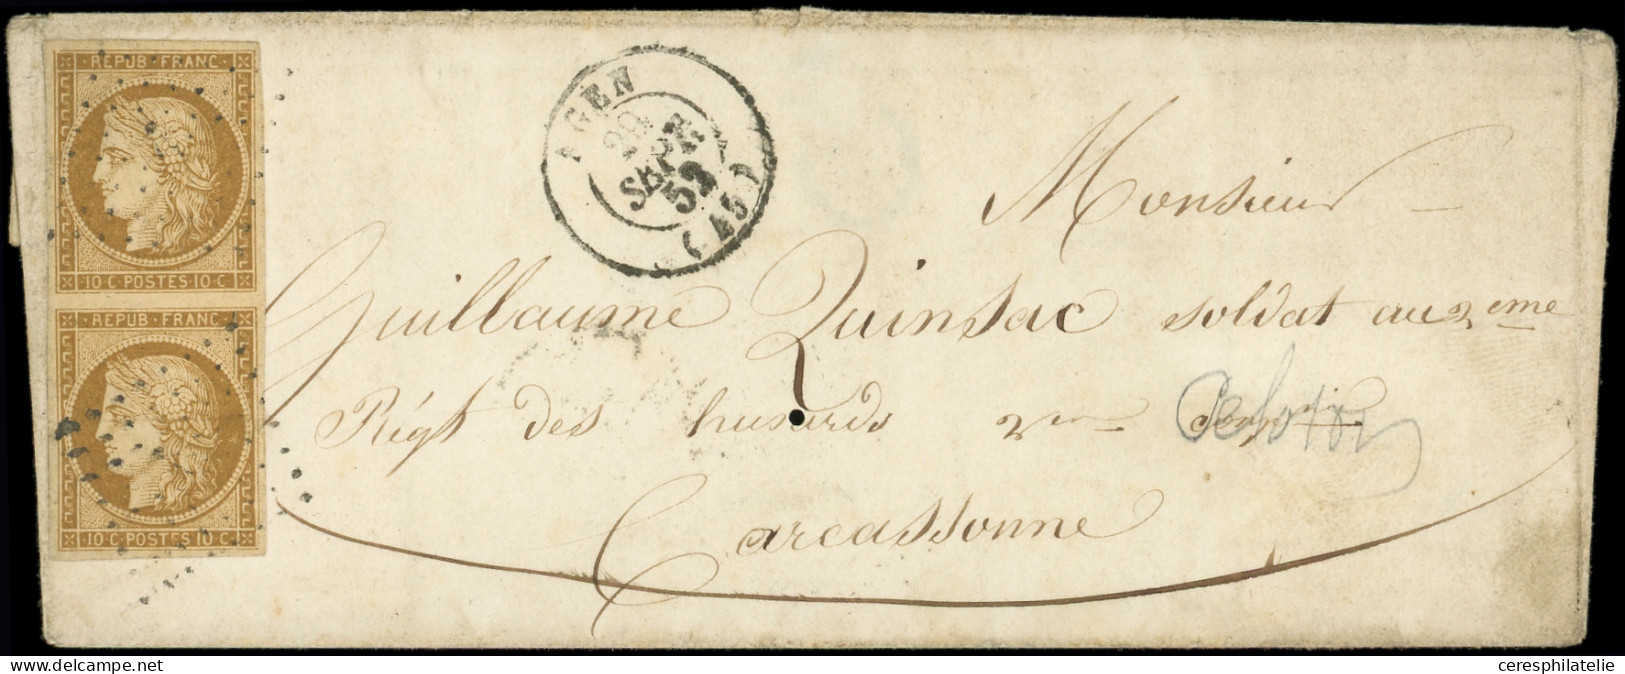 REPUB·FRANC·
10·C·POSTES·10·C
REPUB·FRANC·
10·C·POSTES·10·C
AGEN
29
SEPT.
52
(45)
Monsieur
Guillaume Quinsac soldat au 2eme
Régt des husards 2me
Carcassonne
delcampe.net
ceresphilatelie